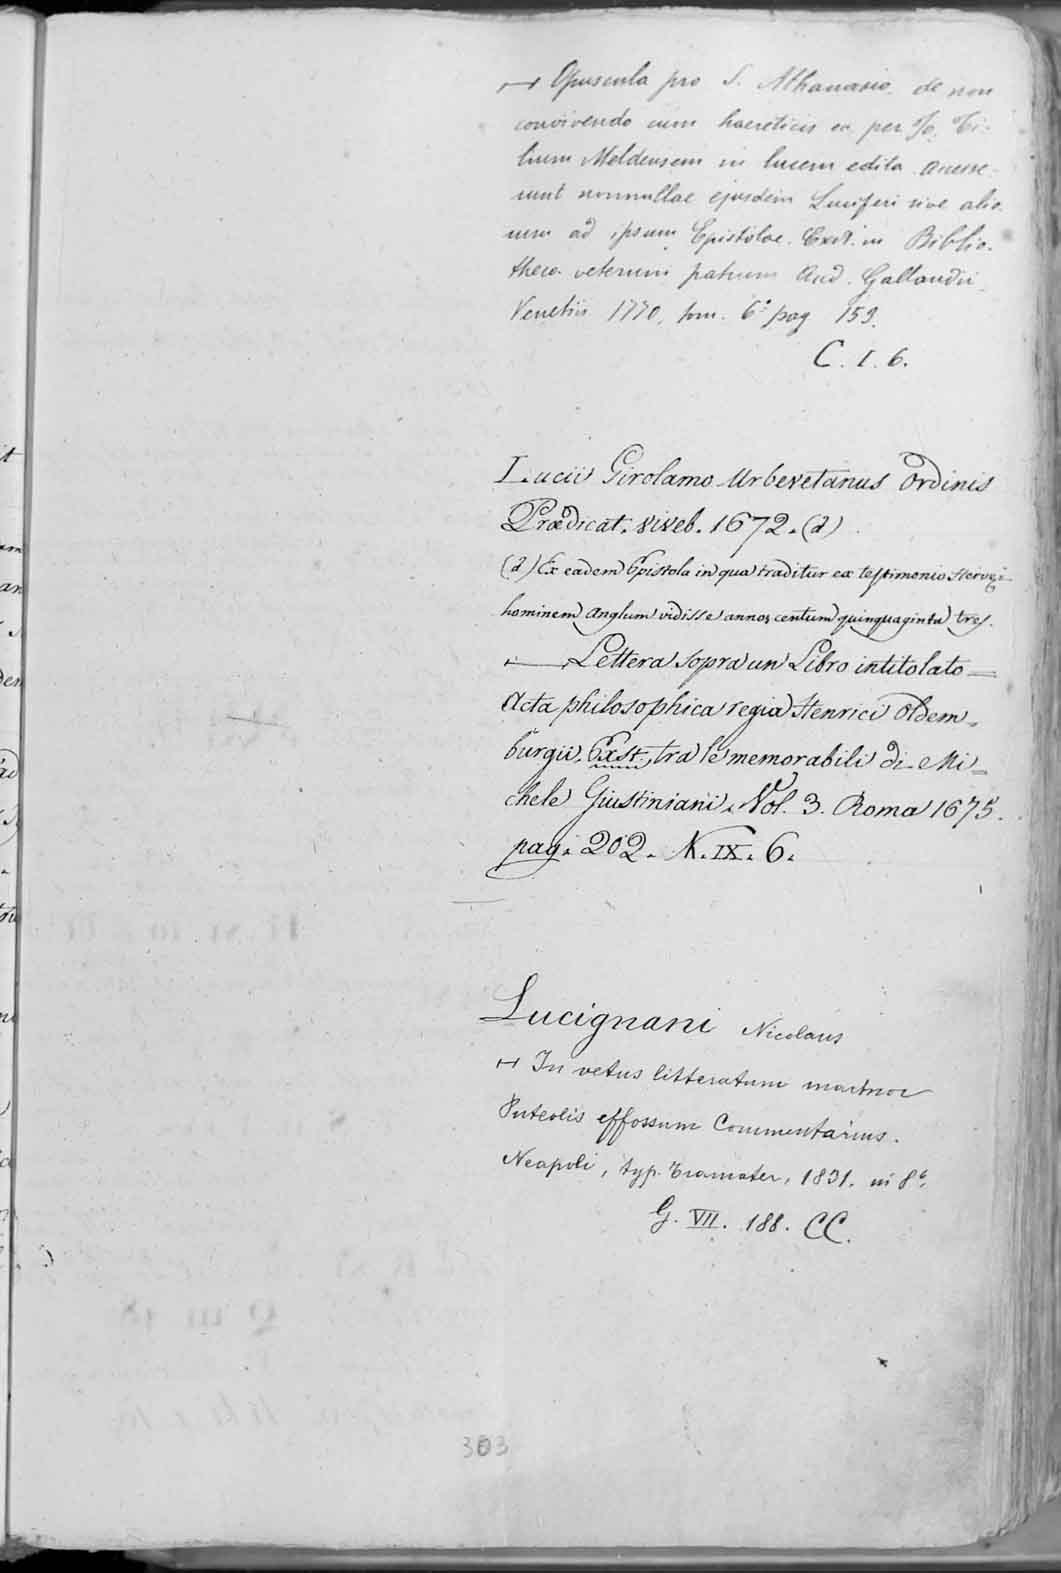 ⊢⊣ Opuscula pro S. Athanasio. de non
convivendo cum haereticis ec. per Jo. Ti-
lium Meldensem in lucem edita. Accesse-
runt nonnullae ejusdem Luciferi sive alio-
rum ad ipsum Epistolae. Exst. in Biblio-
theca veterum patrum And. Gallandii
Venetiis 1770. tom. 6.° pag 159.
C. I. 6.
Lucii Girolamo Urbevetanus Ordinis
Prædicat. viveb. 1672. (a)
(a) Ex eadem Epistola in qua traditur ex testimonio
hominem Anglum vidisse annos centum quinquaginta tres.
Lettera sopra un Libro intitolato =
Acta philosophica regia Henrici Oldem=
burgii. Exst. tra le memorabili di Mi=
chele Giustiniani. Vol. 3. Roma 1675.
pag. 202. N. IX. 6.
Lucignani Nicolaus
⊢⊣ In vetus litteratum marmor
Puteolis effossum Commentarius.
Neapoli, typ. Tramater, 1831. in 8°.
G. VII. 188. CC.
303